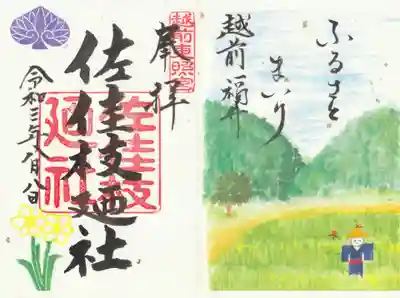 ふるさと
まいり
越前 福井
越前東照宮
奉拝
佐佳枝廼社
佐佳枝
廼社
令和三年八月八日